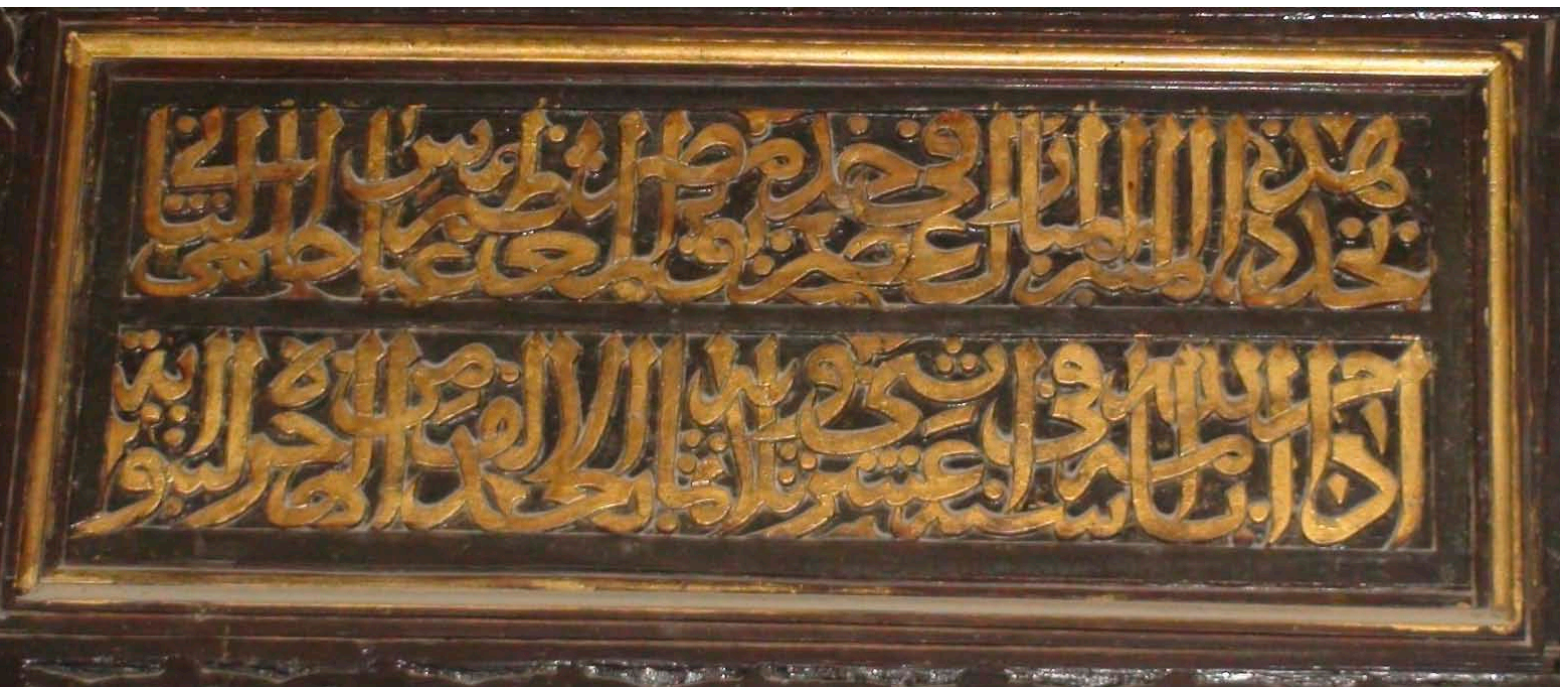 تجدد هذا المنبر المبارك في عصر خديو مصر المعظم عباس حلمي الثاني
ادام الله في سنة اثني عشر وثلاثماية بعد الالف من الهجرة النبوية